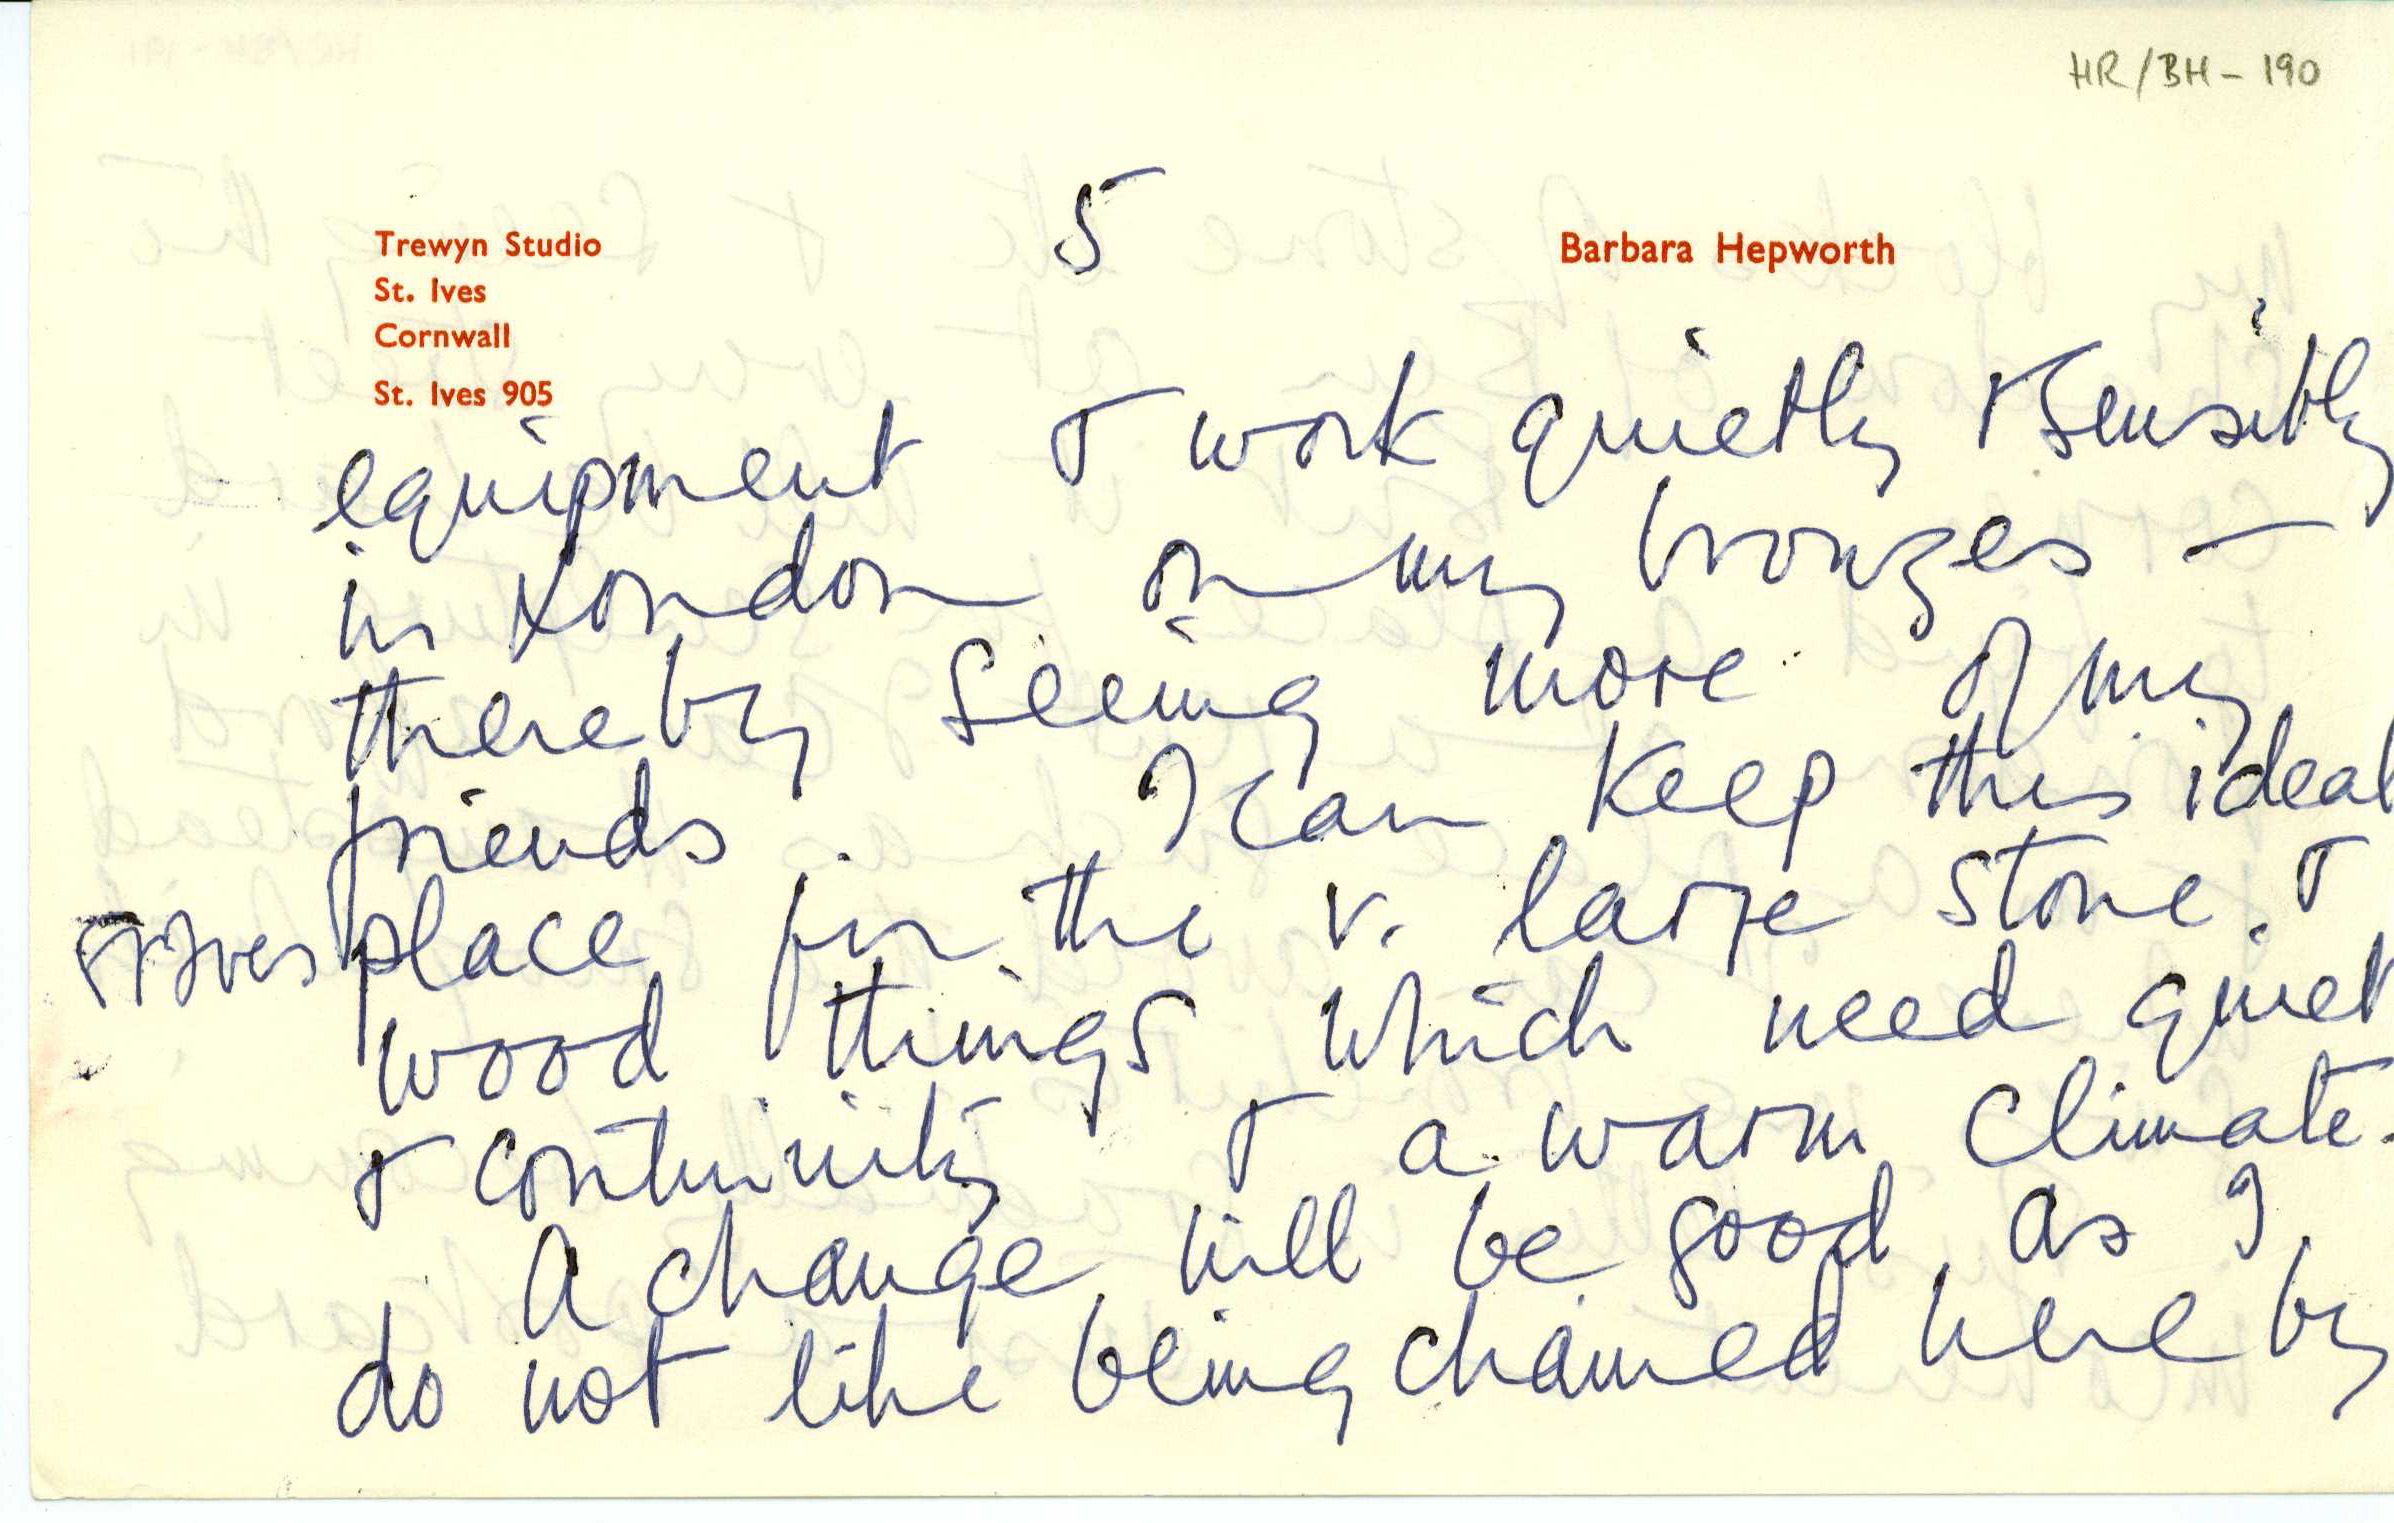 HR/BH - 190
5
Trewyn Studio
St. Ives
Cornwall
St. Ives 905
Barbara Hepworth
equipment & work quietly & sensibly
in London on my bronzes –
thereby seeing more of my
friends. I can keep this ideal
St Ives place for the v. large stone &
wood things which need quiet
& continuity & a warm climate.
A change will be good, as I
do not like being chained here by